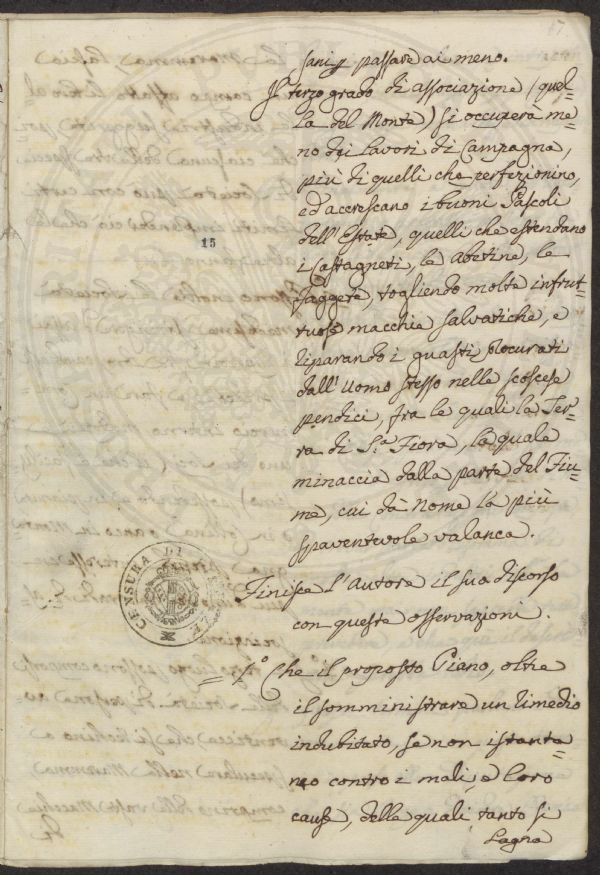 17
sani passare ai meno.
Il terzo grado di associazione (quel=
la del Monte) si occuperà me=
no dei Lavori di Campagna,
più di quelli che perfezionino,
ed accrescano i buoni Pascoli
dell'Estate, quelli che estendano
i Castagneti, le abetine, le
Faggete, togliendo molte infrut=
tuose macchie salvatiche, e
riparando i guasti procurati
dall'uomo stesso nelle scoscese
pendici, fra le quali la Ter=
ra di S.ta Fiora, la quale
minaccia dalla parte del Fiu=
me, cui dà nome la più
spaventevole valanca.
15
CENSURA DI
Finisce l'Autore il suo discorso
con queste osservazioni.
= 1.° Che il proposto Piano, oltre
il somministrare un rimedio
indubitato, se non istanta=
neo contro i mali, e loro
cause, delle quali tanto si
Lagna